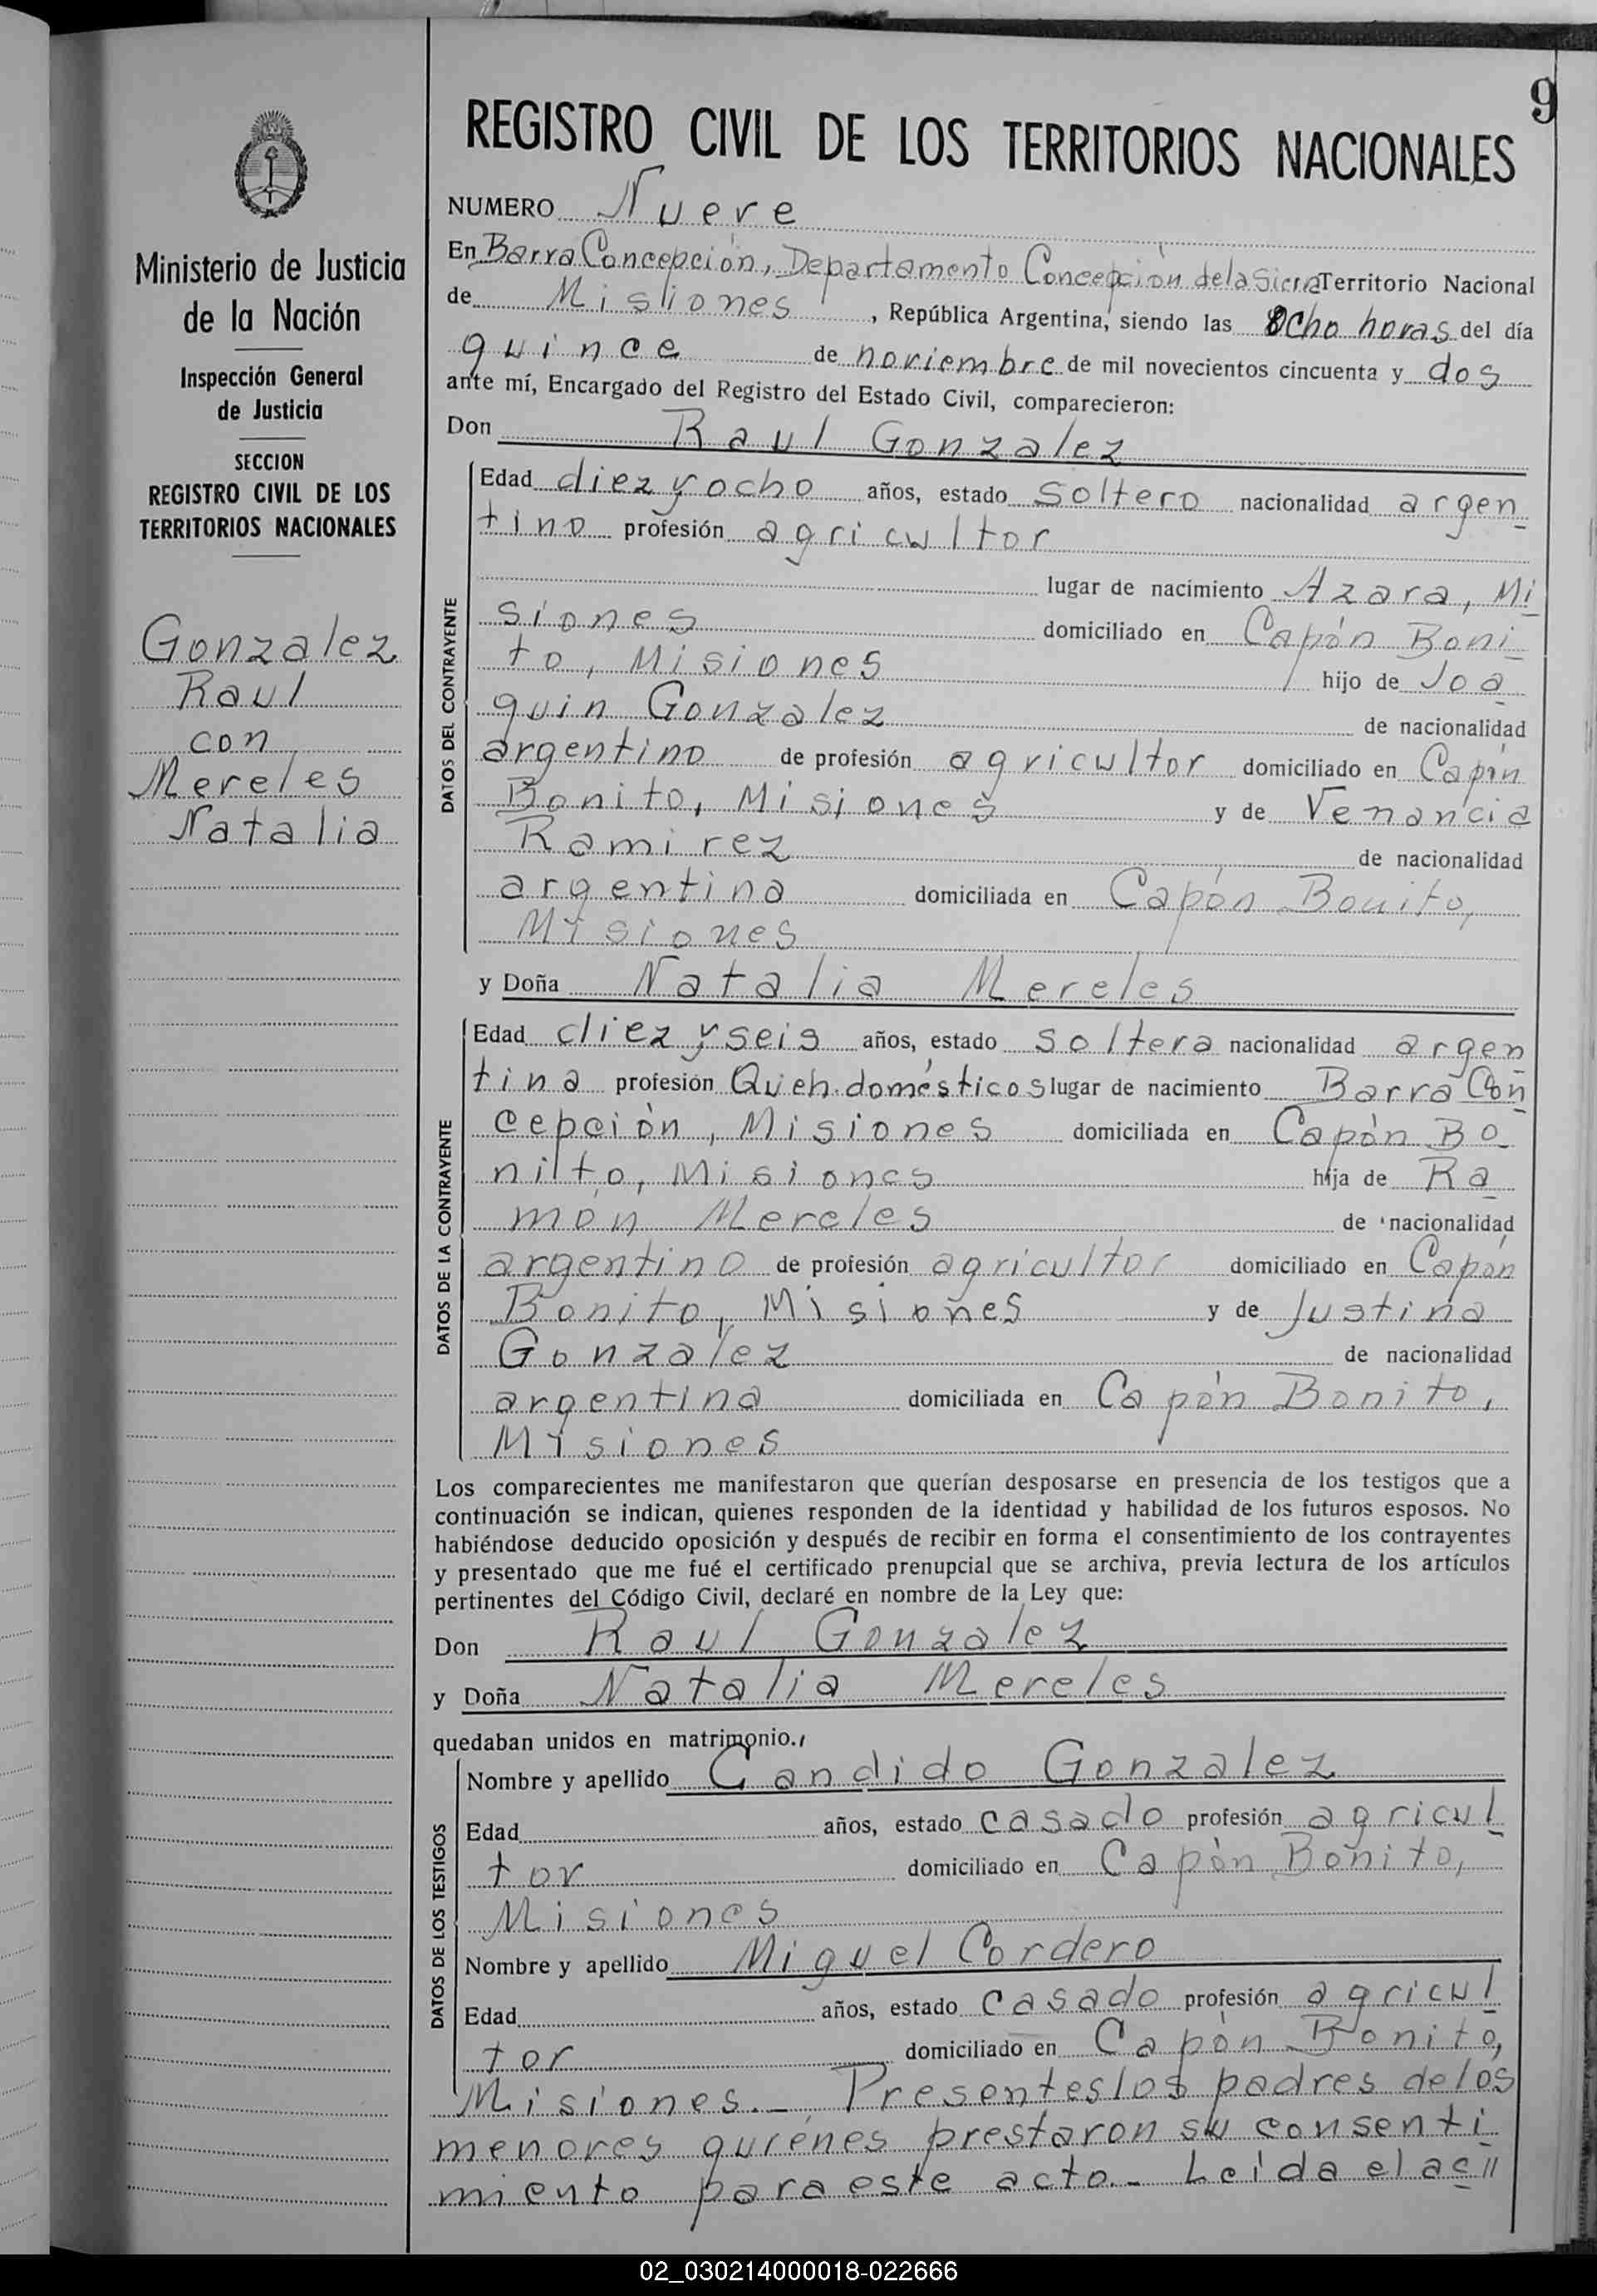 9
REGISTRO CIVIL DE LOS TERRITORIOS NACIONALES
Ministerio de Justicia
de la Nación
Inspección General
de Justicia
SECCION
REGISTRO CIVIL DE LOS
TERRITORIOS NACIONALES
Gonzalez
Raul
con
Mereles
Natalia
NUMERO Nueve
En Barra Concepción, Departamento Concepción de la Sierra Territorio Nacional
de Misiones, República Argentina, siendo las Ocho horas del día
quince de noviembre de mil novecientos cincuenta y dos
ante mí, Encargado del Registro del Estado Civil, comparecieron:
Don Raul Gonzalez
DATOS DEL CONTRAYENTE
Edad diez y ocho años, estado soltero nacionalidad argen
tino profesión agricultor
lugar de nacimiento Azara, Mi
siones domiciliado en Capón Boni
to, Misiones hijo de Joa
quin Gonzalez de nacionalidad
argentino de profesión agricultor domiciliado en Capón
Bonito, Misiones y de Venancia
Ramirez de nacionalidad
argentina domiciliada en Capón Bonito,
Misiones
y Doña Natalia Mereles
DATOS DE LA CONTRAYENTE
Edad diez y seis años, estado soltera nacionalidad argen
tina profesión Queh. domésticos lugar de nacimiento Barra Con
cepción, Misiones domiciliada en Capón Bo
nito, Misiones hija de Ra
món Mereles de nacionalidad
argentino de profesión agricultor domiciliado en Capón
Bonito, Misiones y de Justina
Gonzalez de nacionalidad
argentina domiciliada en Capón Bonito,
Misiones
Los comparecientes me manifestaron que querían desposarse en presencia de los testigos que a
continuación se indican, quienes responden de la identidad y habilidad de los futuros esposos. No
habiéndose deducido oposición y después de recibir en forma el consentimiento de los contrayentes
y presentado que me fué el certificado prenupcial que se archiva, previa lectura de los artículos
pertinentes del Código Civil, declaré en nombre de la Ley que:
Don Raul Gonzalez
y Doña Natalia Mereles
quedaban unidos en matrimonio.
DATOS DE LOS TESTIGOS
Nombre y apellido Candido Gonzalez
Edad años, estado casado profesión agricul
tor domiciliado en Capón Bonito,
Misiones
Nombre y apellido Miguel Cordero
Edad años, estado casado profesión agricul
tor domiciliado en Capón Bonito,
Misiones.- Presentes los padres de los
menores quienes prestaron su consenti
miento para este acto.- Leida el ac //
02_030214000018-022666